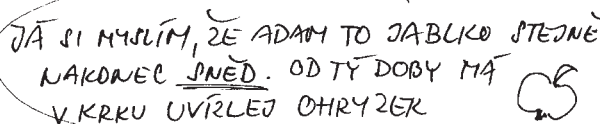 JÁ SI MYSLÍM, ŽE ADAM TO JABLKO STEJNĚ
NAKONEC SNĚD. OD TÝ DOBY MÁ
V KRKU UVÍZLEJ OHRYZEK